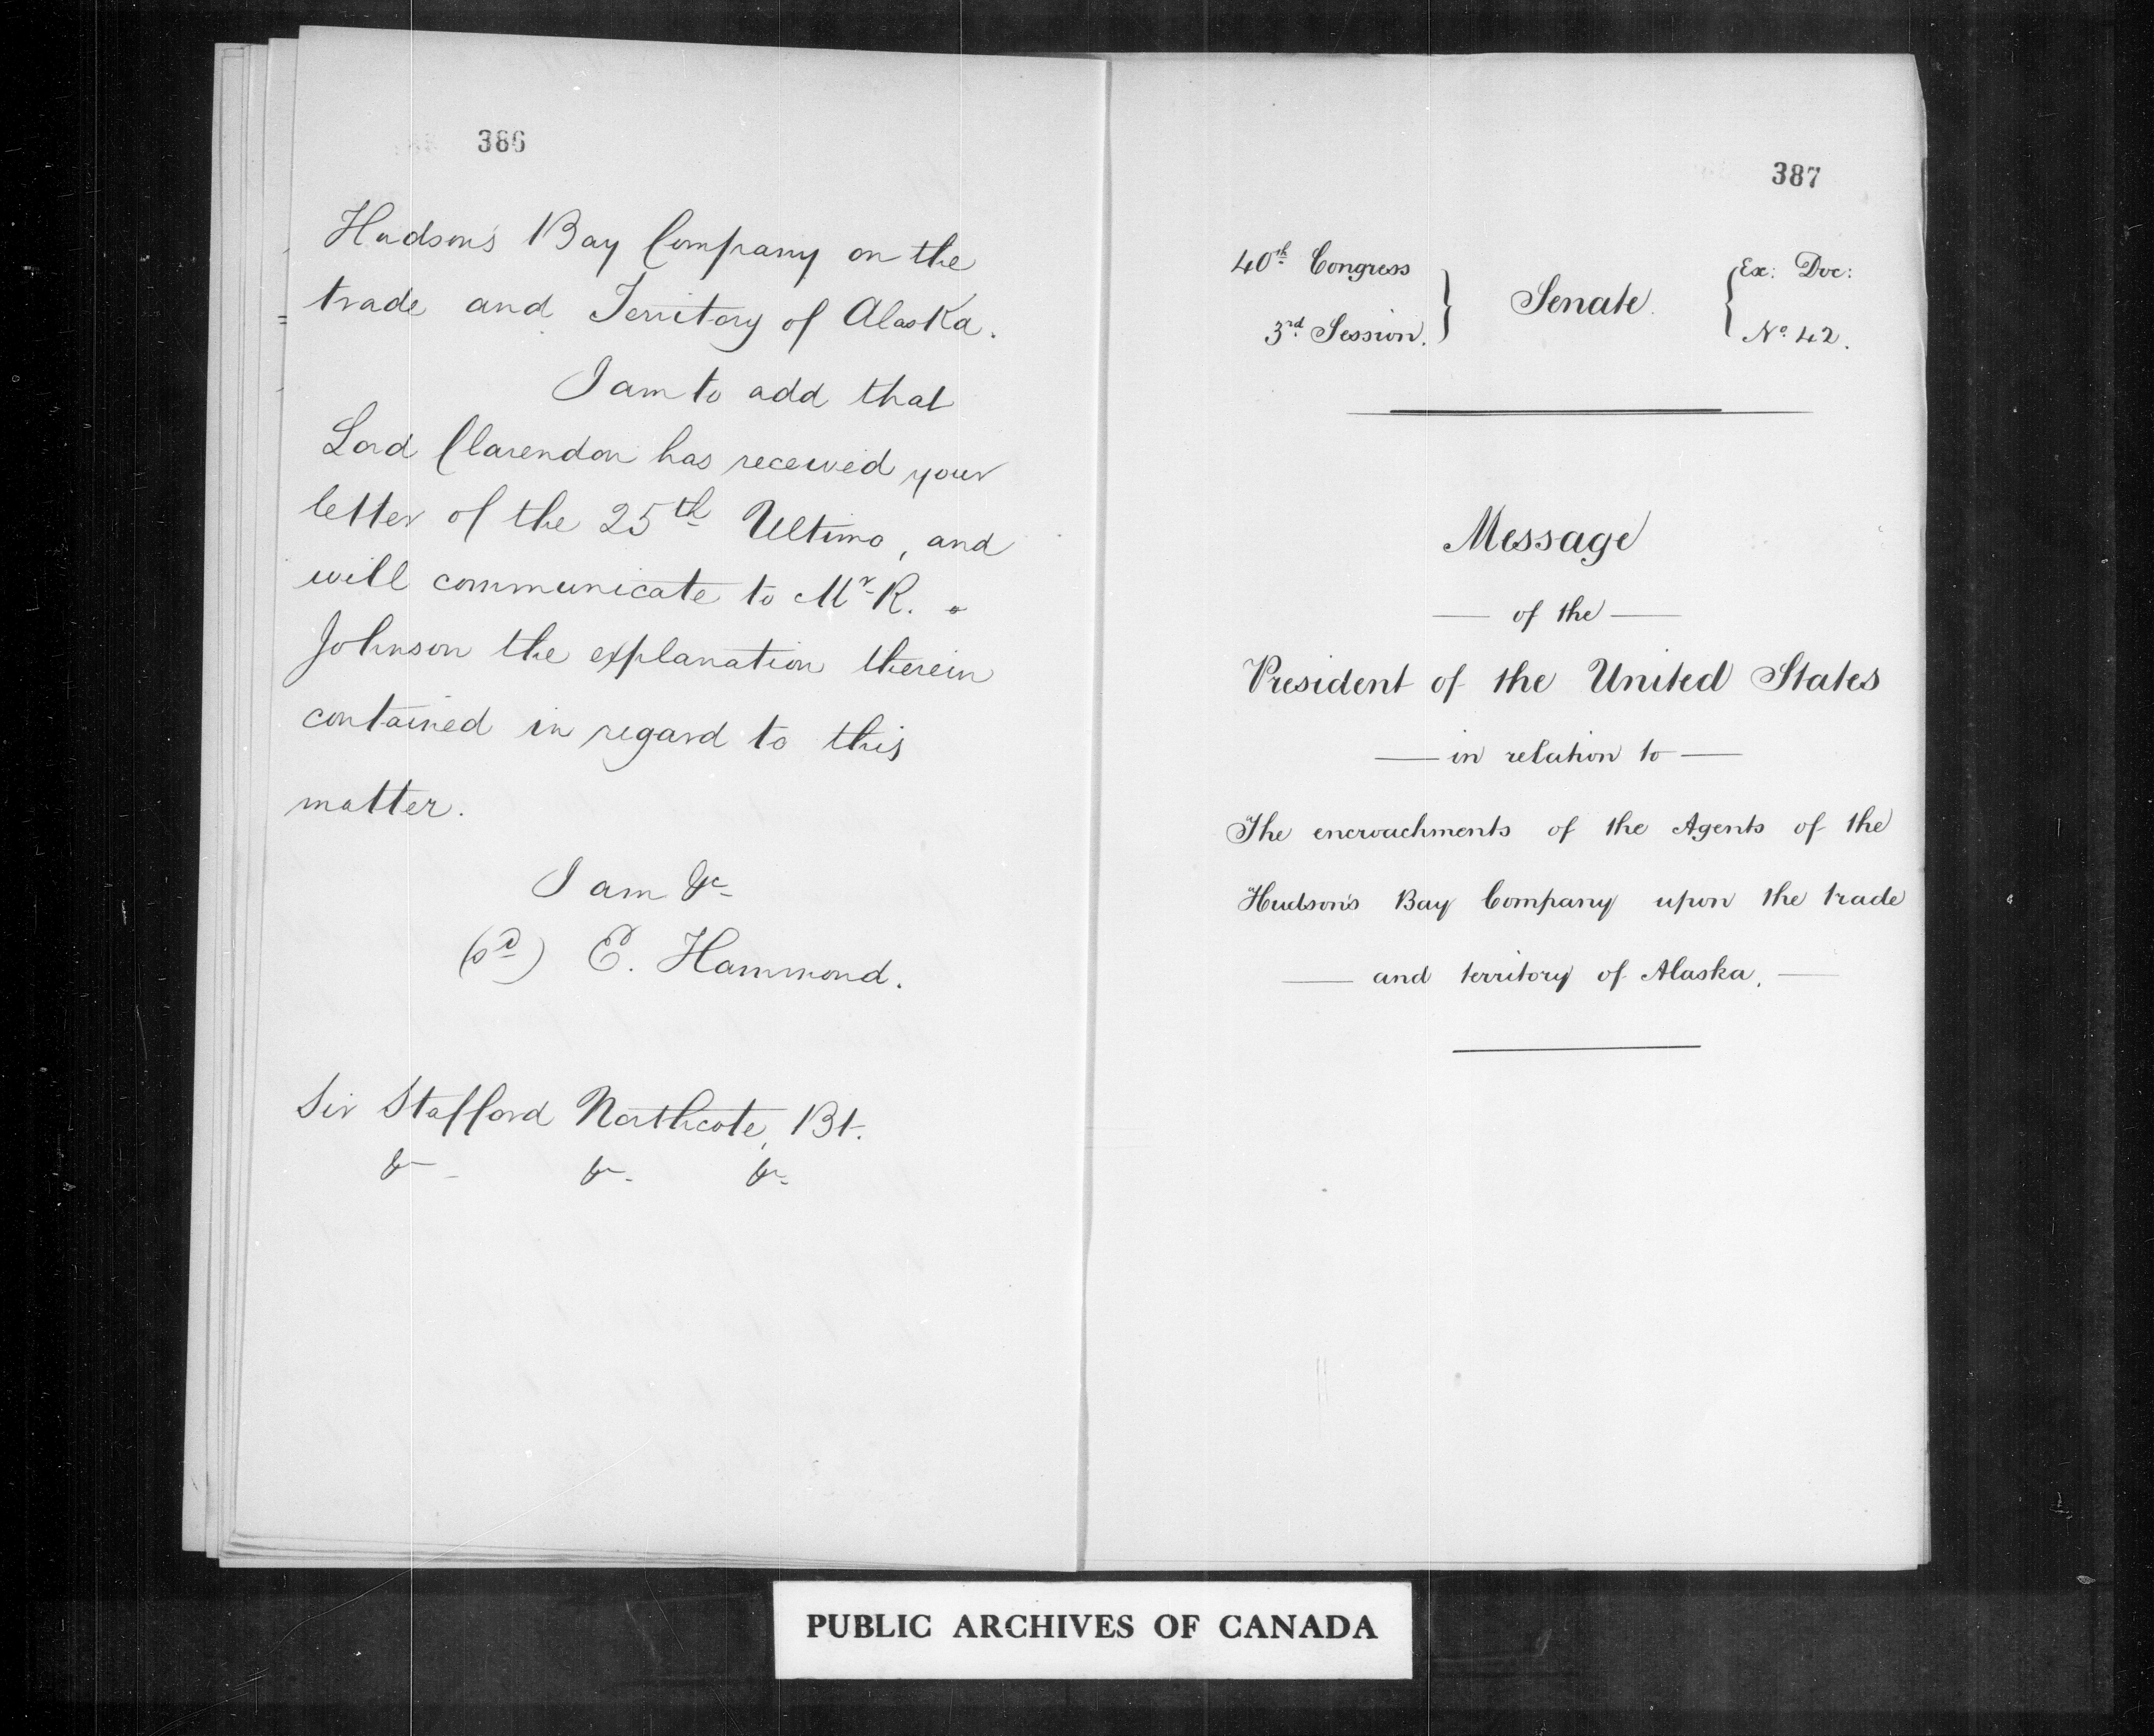 386
Hudson's Bay Company on the
trade and Territory of Alaska.
I am to add that
Lord Clarendon has received your
letter of the 25th Ultimo, and
will communicate to Mr R.
Johnson the explanation therein
contained in regard to this
matter.
I am &c
(sd) E. Hammond.
Sir Stafford Northcote, Bt.
&c &c &c
387
40th Congress } Senate. { Ex: Doc:
3rd Session. } { No 42.
Message
— of the —
President of the United States
— in relation to —
The encroachments of the Agents of the
Hudson's Bay Company upon the trade
— and territory of Alaska. —
PUBLIC ARCHIVES OF CANADA